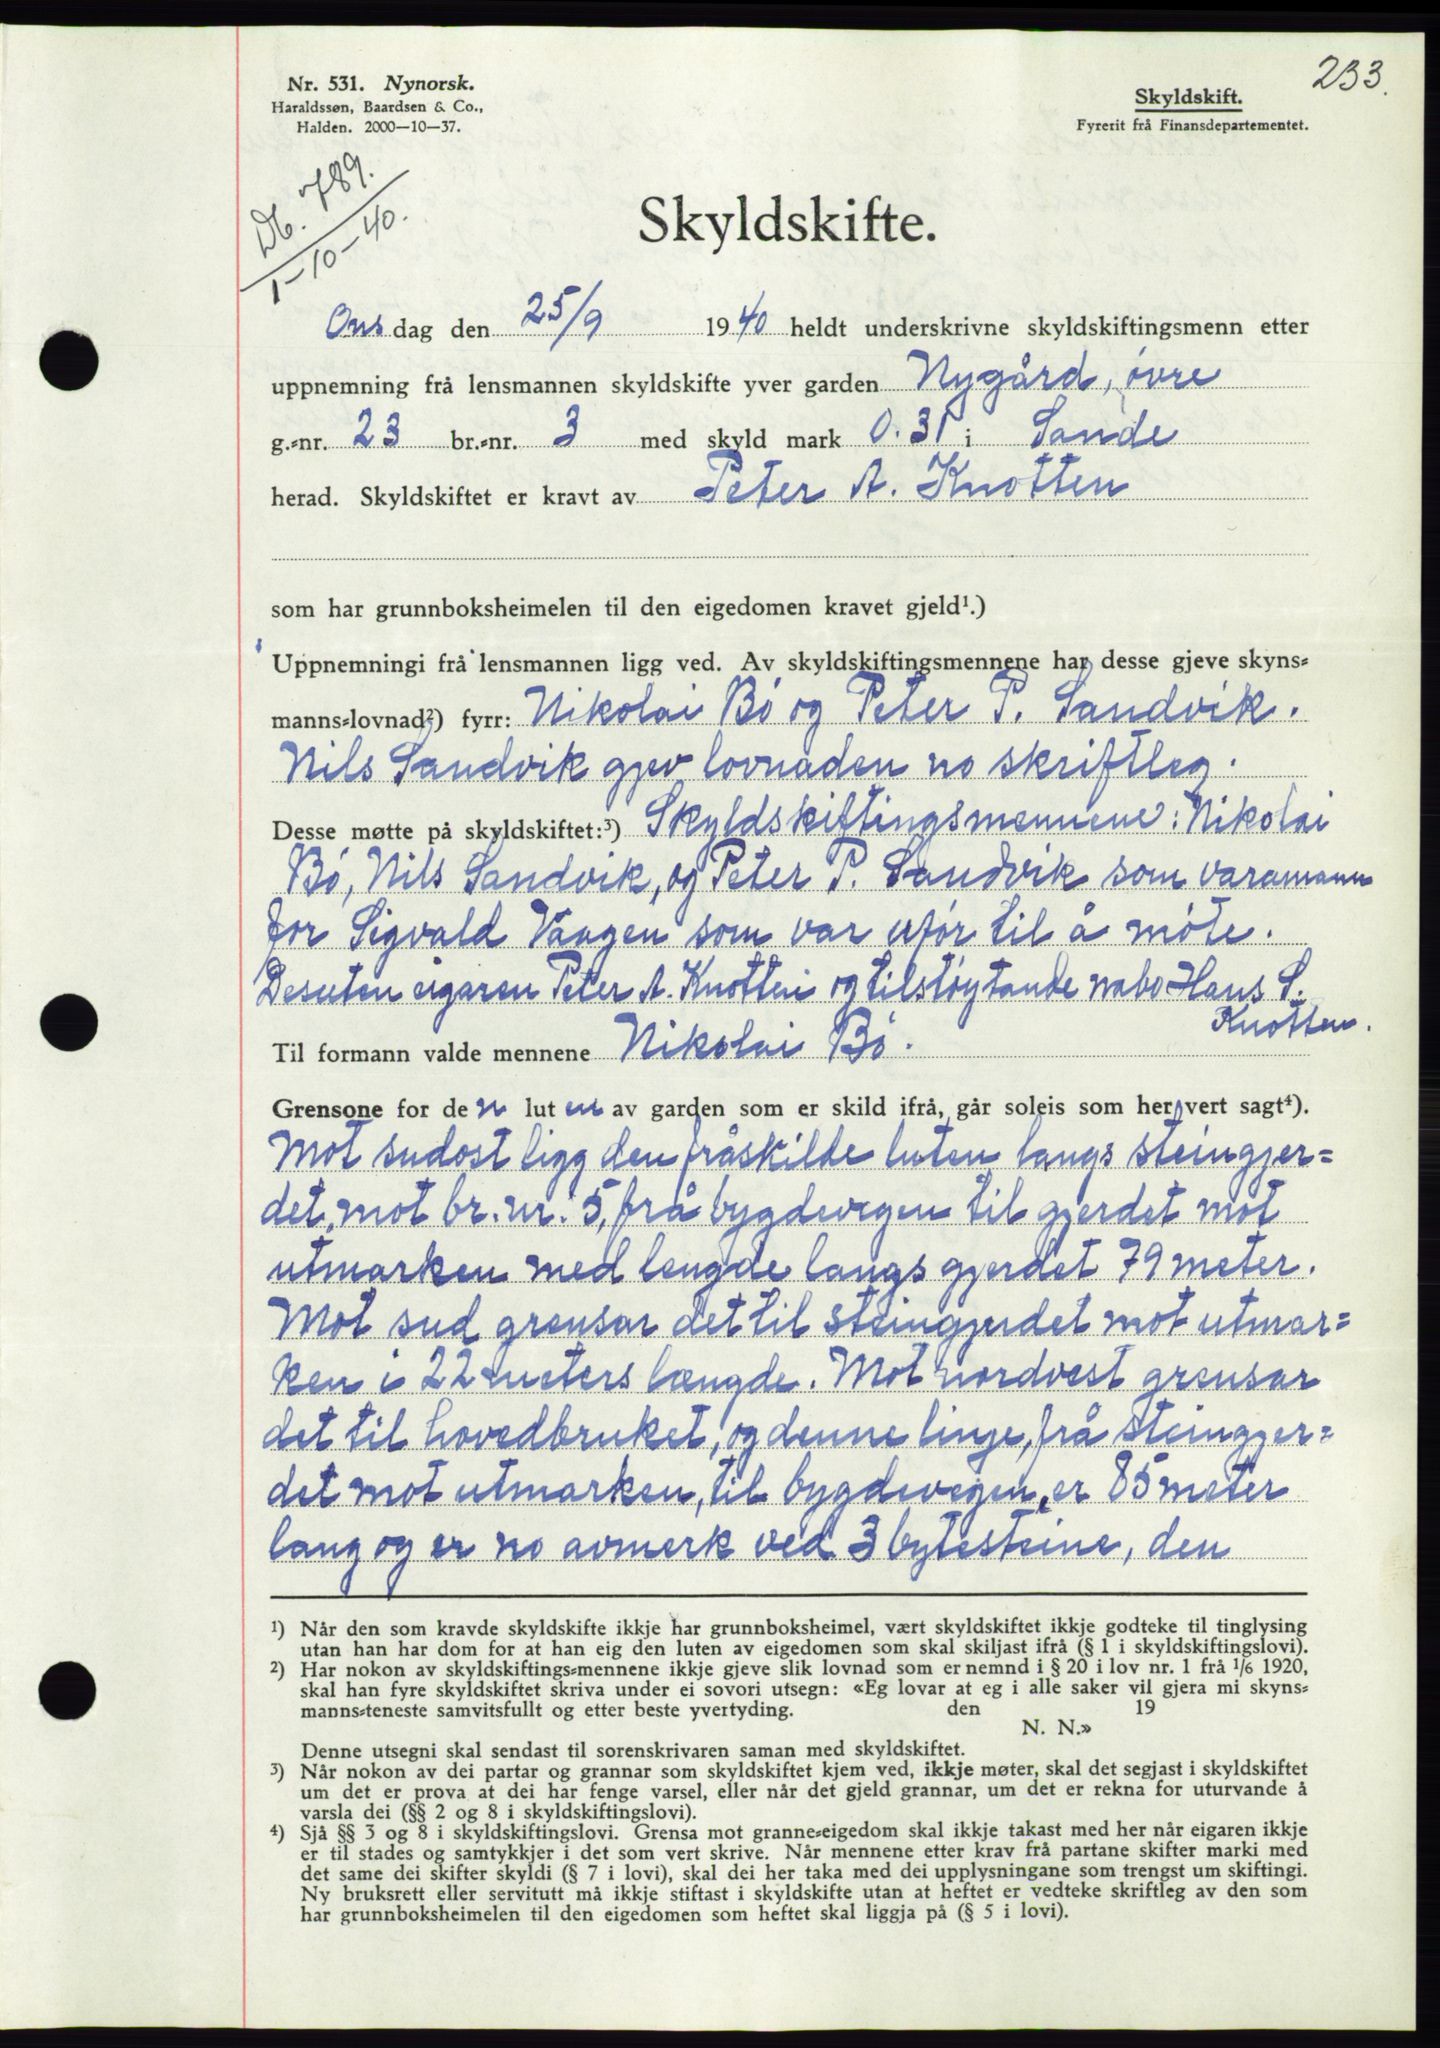 233.
Nr. 531. Nynorsk.
Haraldssøn, Baardsen & Co.,
Halden. 2000—10—37.
Skyldskift.
Fyrerit frå Finansdepartementet.
Db. 789.
1-10-40.
Skyldskifte.
Onsdag den 25/9 1940 heldt underskrivne skyldskiftingsmenn etter
uppnemning frå lensmannen skyldskifte yver garden Nygård, övre
g.-nr. 23 br.-nr. 3 med skyld mark 0.31 i Sande
herad. Skyldskiftet er kravt av Peter A. Knotten
som har grunnboksheimelen til den eigedomen kravet gjeld¹.)
Uppnemningi frå lensmannen ligg ved. Av skyldskiftingsmennene har desse gjeve skyns-
manns-lovnad²) fyrr: Nikolai Bö og Peter P. Sandvik.
Nils Sandvik gjev lovnaden no skriftleg.
Desse møtte på skyldskiftet:³) Skyldskiftingsmennene: Nikolai
Bö, Nils Sandvik, og Peter P. Sandvik som varamann
for Sigvald Vaagen som var uför til å möte.
Desuten eigaren Peter A. Knotten og tilstöytande nabo Hans S.
Knotten.
Til formann valde mennene Nikolai Bö.
Grensone for den luten av garden som er skild ifrå, går soleis som her vert sagt⁴).
Mot sudost ligg den fråskilde luten langs steingjer=
det, mot br. nr. 5, frå bygdevegen til gjerdet mot
utmarken med lengde langs gjerdet 79 meter.
Mot sud grensar det til steingjerdet mot utmar=
ken i 22 meters længde. Mot nordvest grensar
det til hovedbruket, og denne linje, frå steingjer=
det mot utmarken, til bygdevegen, er 85 meter
lang og er no avmerk ved 3 bytesteine, den
¹) Når den som kravde skyldskifte ikkje har grunnboksheimel, vært skyldskiftet ikkje godteke til tinglysing
utan han har dom for at han eig den luten av eigedomen som skal skiljast ifrå (§ 1 i skyldskiftingslovi).
²) Har nokon av skyldskiftings-mennene ikkje gjeve slik lovnad som er nemnd i § 20 i lov nr. 1 frå 1/6 1920,
skal han fyre skyldskiftet skriva under ei sovori utsegn: «Eg lovar at eg i alle saker vil gjera mi skyns-
manns-teneste samvitsfullt og etter beste yvertyding. den 19
N. N.»
Denne utsegni skal sendast til sorenskrivaren saman med skyldskiftet.
³) Når nokon av dei partar og grannar som skyldskiftet kjem ved, ikkje møter, skal det segjast i skyldskiftet
um det er prova at dei har fenge varsel, eller når det gjeld grannar, um det er rekna for uturvande å
varsla dei (§§ 2 og 8 i skyldskiftingslovi).
⁴) Sjå §§ 3 og 8 i skyldskiftingslovi. Grensa mot granne-eigedom skal ikkje takast med her når eigaren ikkje
er til stades og samtykkjer i det som vert skrive. Når mennene etter krav frå partane skifter marki med
det same dei skifter skyldi (§ 7 i lovi), skal dei her taka med dei upplysningane som trengst um skiftingi.
Ny bruksrett eller servitutt må ikkje stiftast i skyldskifte utan at heftet er vedteke skriftleg av den som
har grunnboksheimelen til den eigedomen som heftet skal liggja på (§ 5 i lovi).